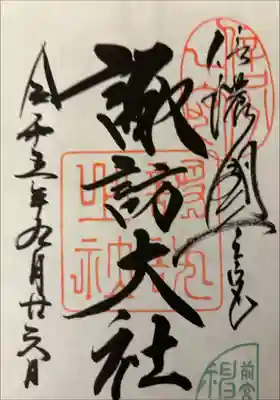 信濃國一之宮
諏訪大社
令和五年九月廿六日
前宮